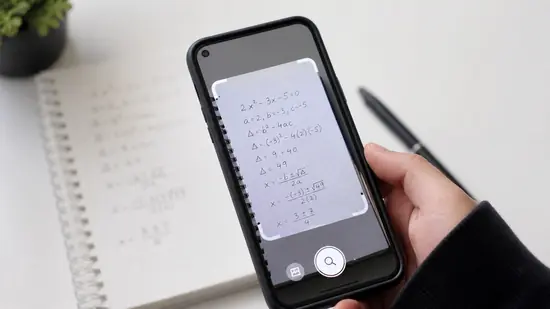 2x² - 3x - 5 = 0
a = 2, b = -3, c = -5
Δ = b² - 4ac
Δ = (-3)² - 4(2)(-5)
Δ = 9 + 40
Δ = 49
x = (-b ± √Δ) / 2a
x = (-(-3) ± √49) / 2(2)
x = (3 ± 7) / 4